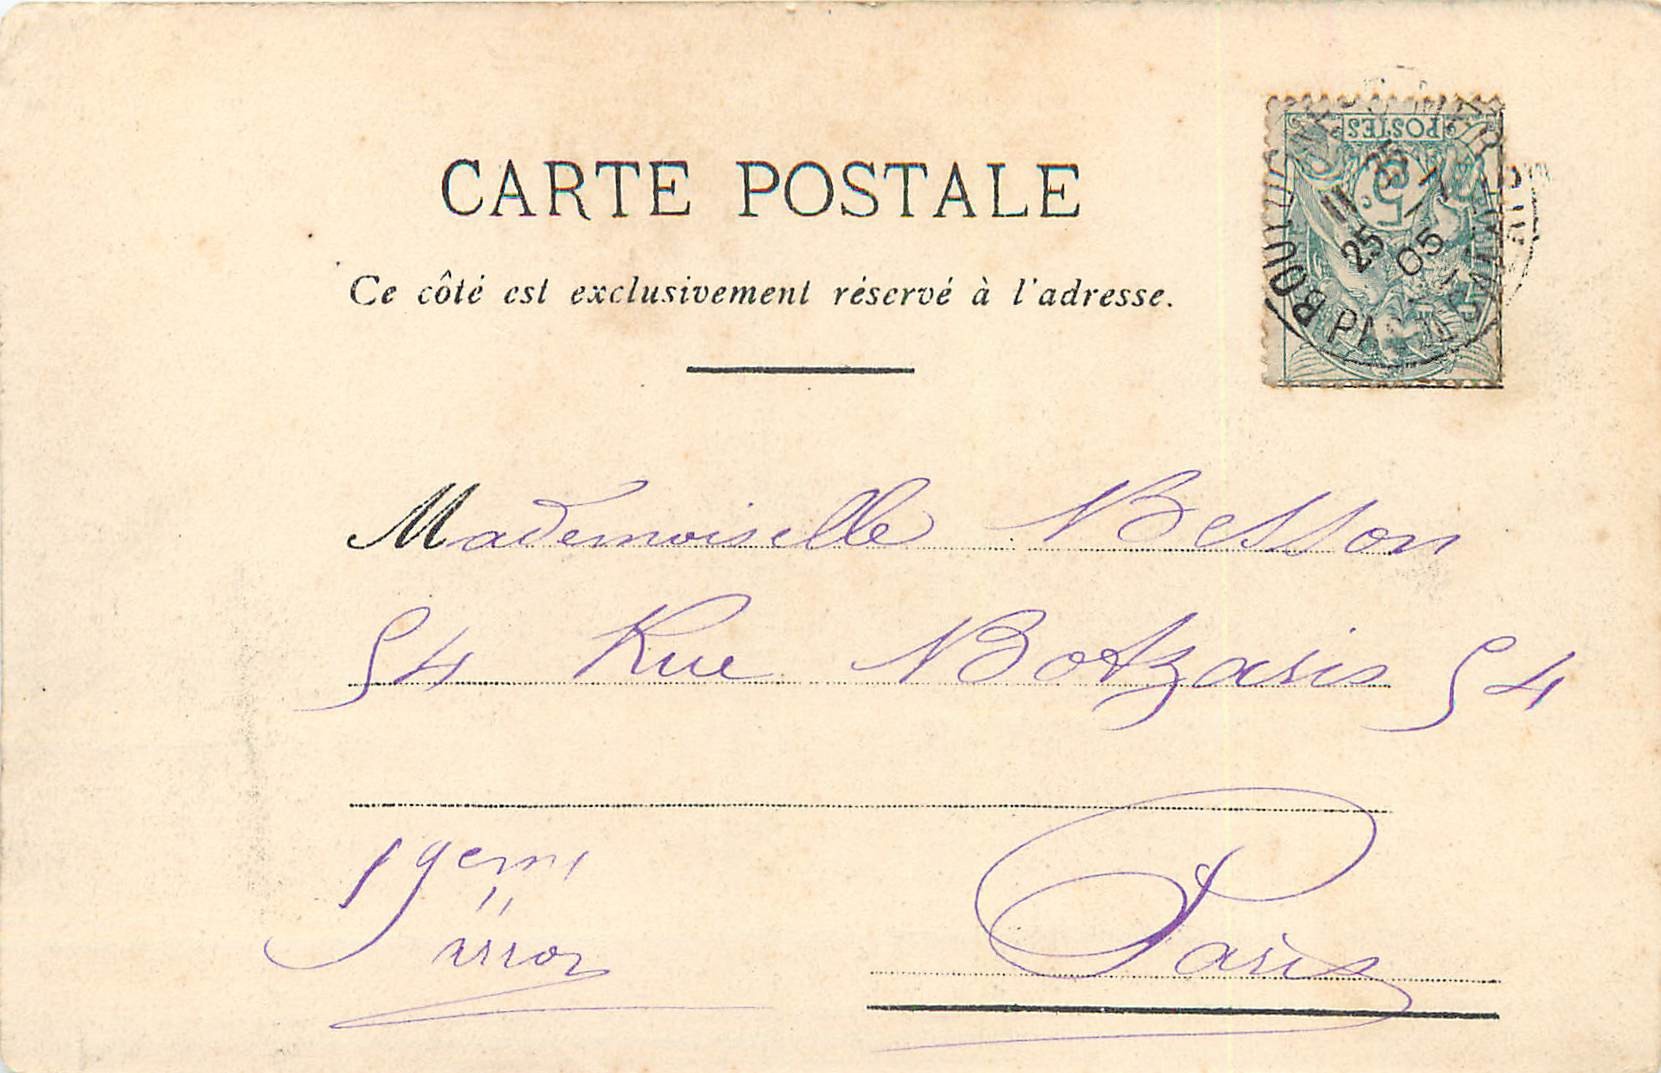 CARTE POSTALE
Ce côté est exclusivement réservé à l'adresse.
POSTES
5c
25 05
PARIS
Mademoiselle Besson
54 Rue Botzaris 54
19eme
arron
Paris